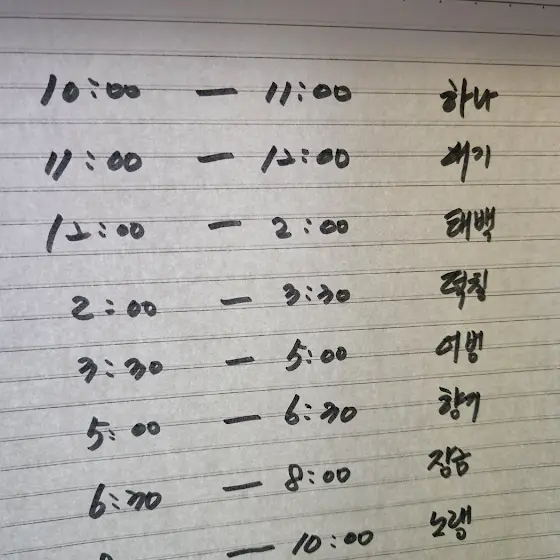 10:00 — 11:00 하나
11:00 — 12:00
12:00 — 2:00 태백
2:00 — 3:30 떡칠
3:30 — 5:00 어벙
5:00 — 6:30 향기
6:30 — 8:00 잠금
— 10:00 노램